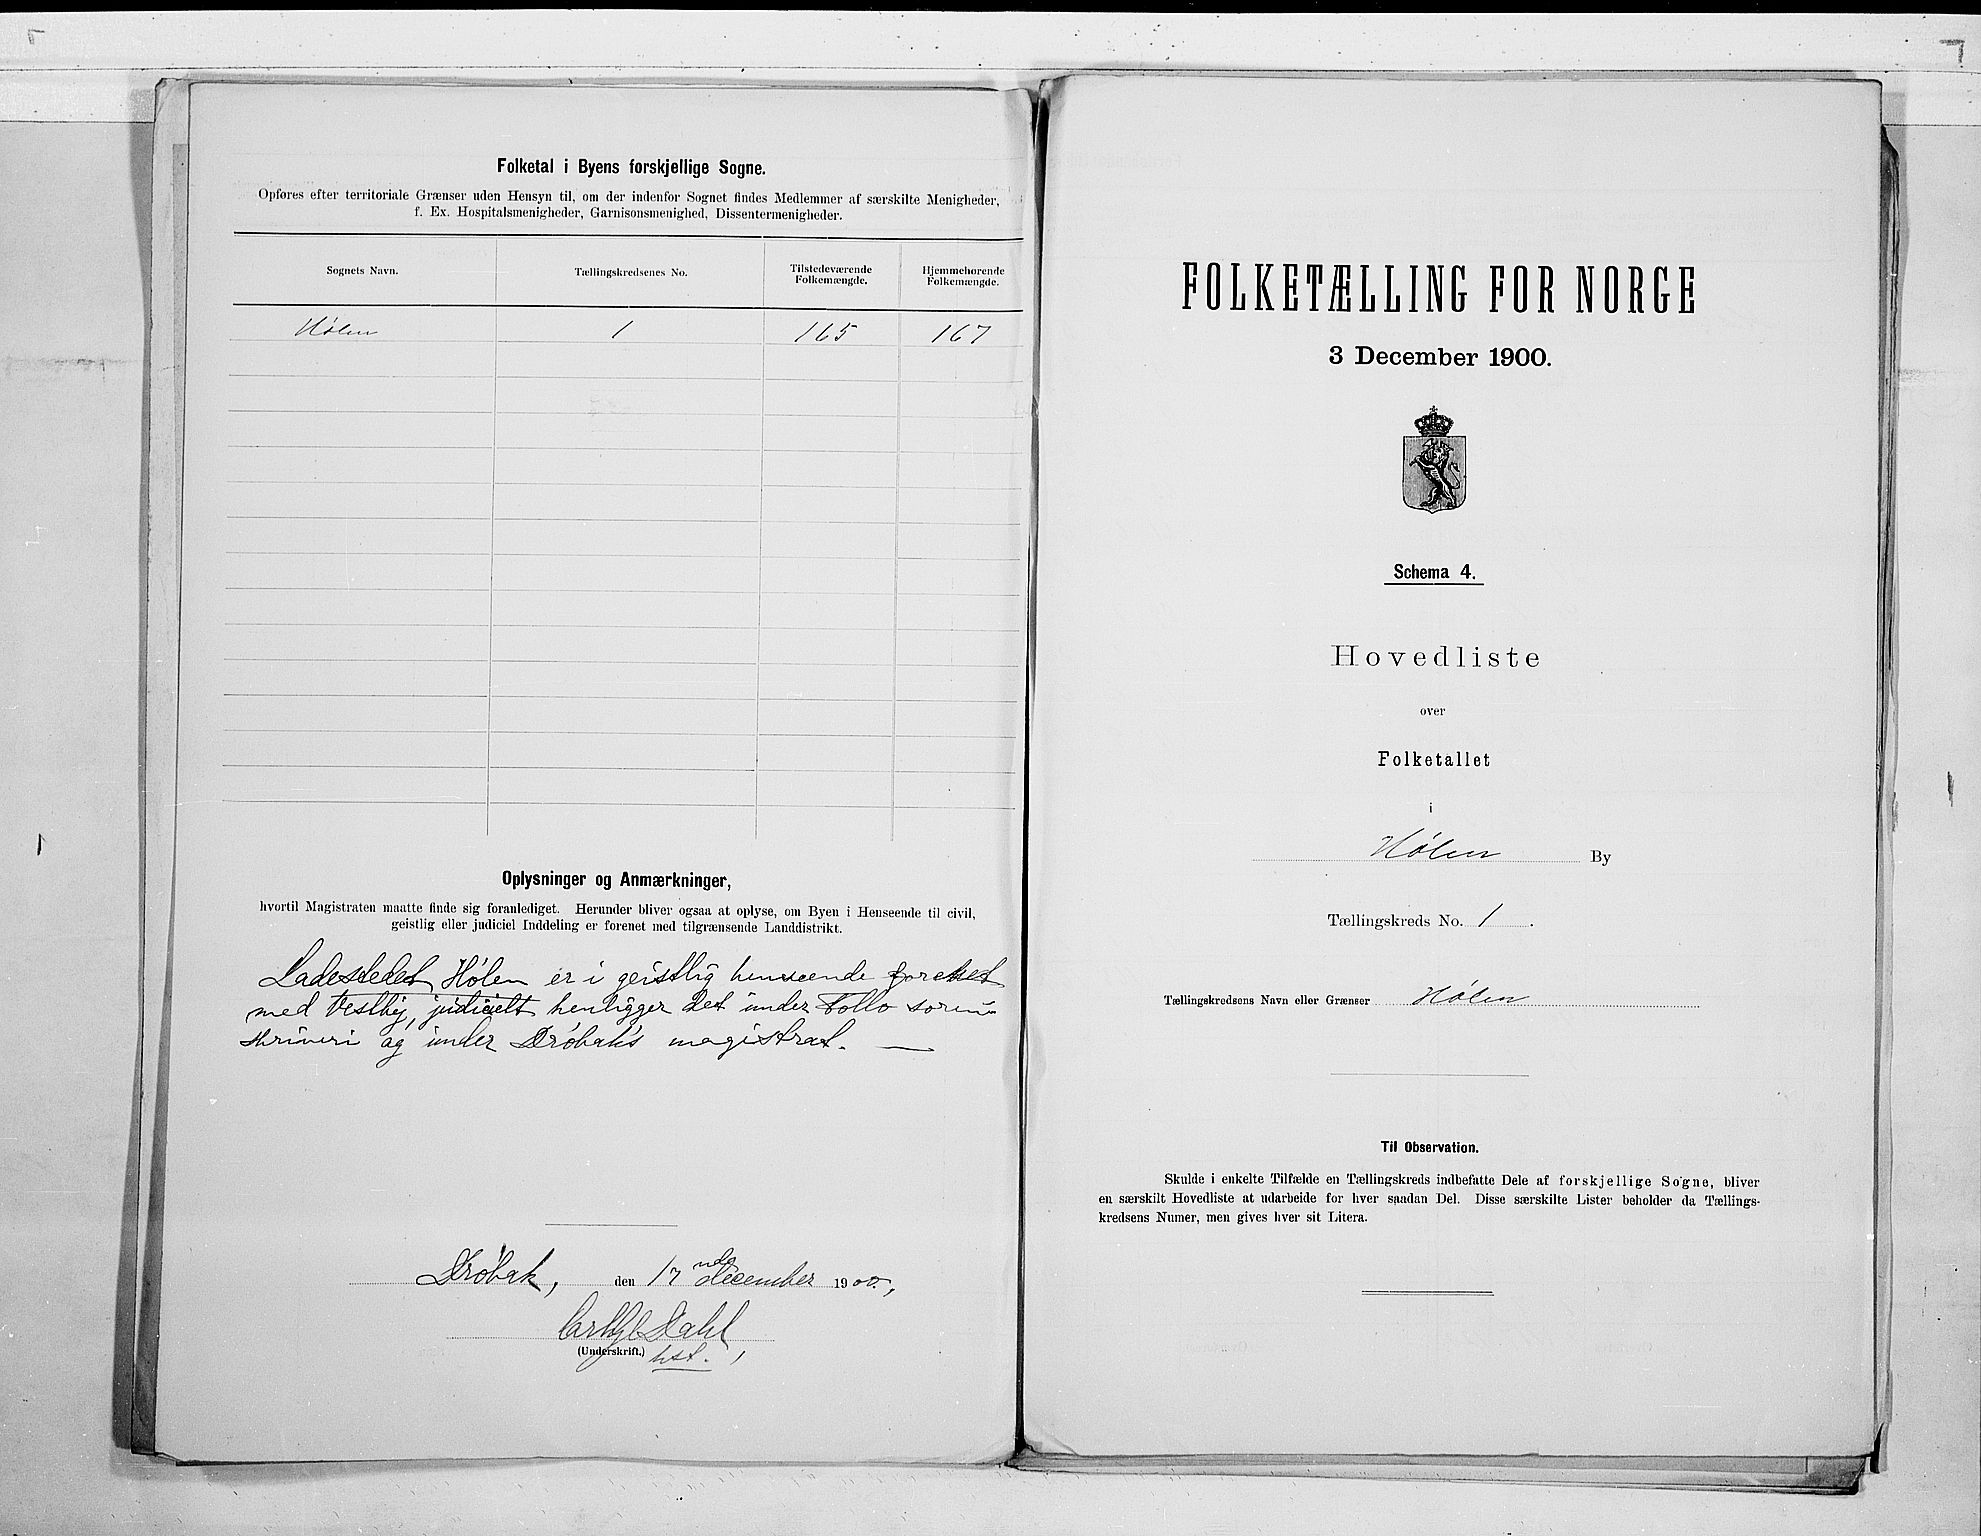 Folketal i Byens forskjellige Sogne.
Opføres efter territoriale Grænser uden Hensyn til, om der indenfor Sognet findes Medlemmer af særskilte Menigheder,
f. Ex. Hospitalsmenigheder, Garnisonsmenighed, Dissentermenigheder.
Sognets Navn. Tællingskredsenes No. Tilstedeværende Folkemængde. Hjemmehørende Folkemængde.
Hølen 1 165 167
Oplysninger og Anmærkninger,
hvortil Magistraten maatte finde sig foranlediget. Herunder bliver ogsaa at oplyse, om Byen i Henseende til civil,
geistlig eller judiciel Inddeling er forenet med tilgrænsende Landdistrikt.
Ladestedet Hølen er i geistlig henseende forenet
med Vestby, judicielt henligger det under Follo soren-
skriveri og under Drøbak's magistrat. —
Drøbak, den 17 december 1900.,
Dahl
(Underskrift.) kst.,
FOLKETÆLLING FOR NORGE
3 December 1900.
Schema 4.
Hovedliste
over
Folketallet
i
Hølen By
Tællingskreds No. 1.
Tællingskredsens Navn eller Grænser Hølen
Til Observation.
Skulde i enkelte Tilfælde en Tællingskreds indbefatte Dele af forskjellige Sogne, bliver
en særskilt Hovedliste at udarbeide for hver saadan Del. Disse særskilte Lister beholder da Tællings-
kredsens Numer, men gives hver sit Litera.